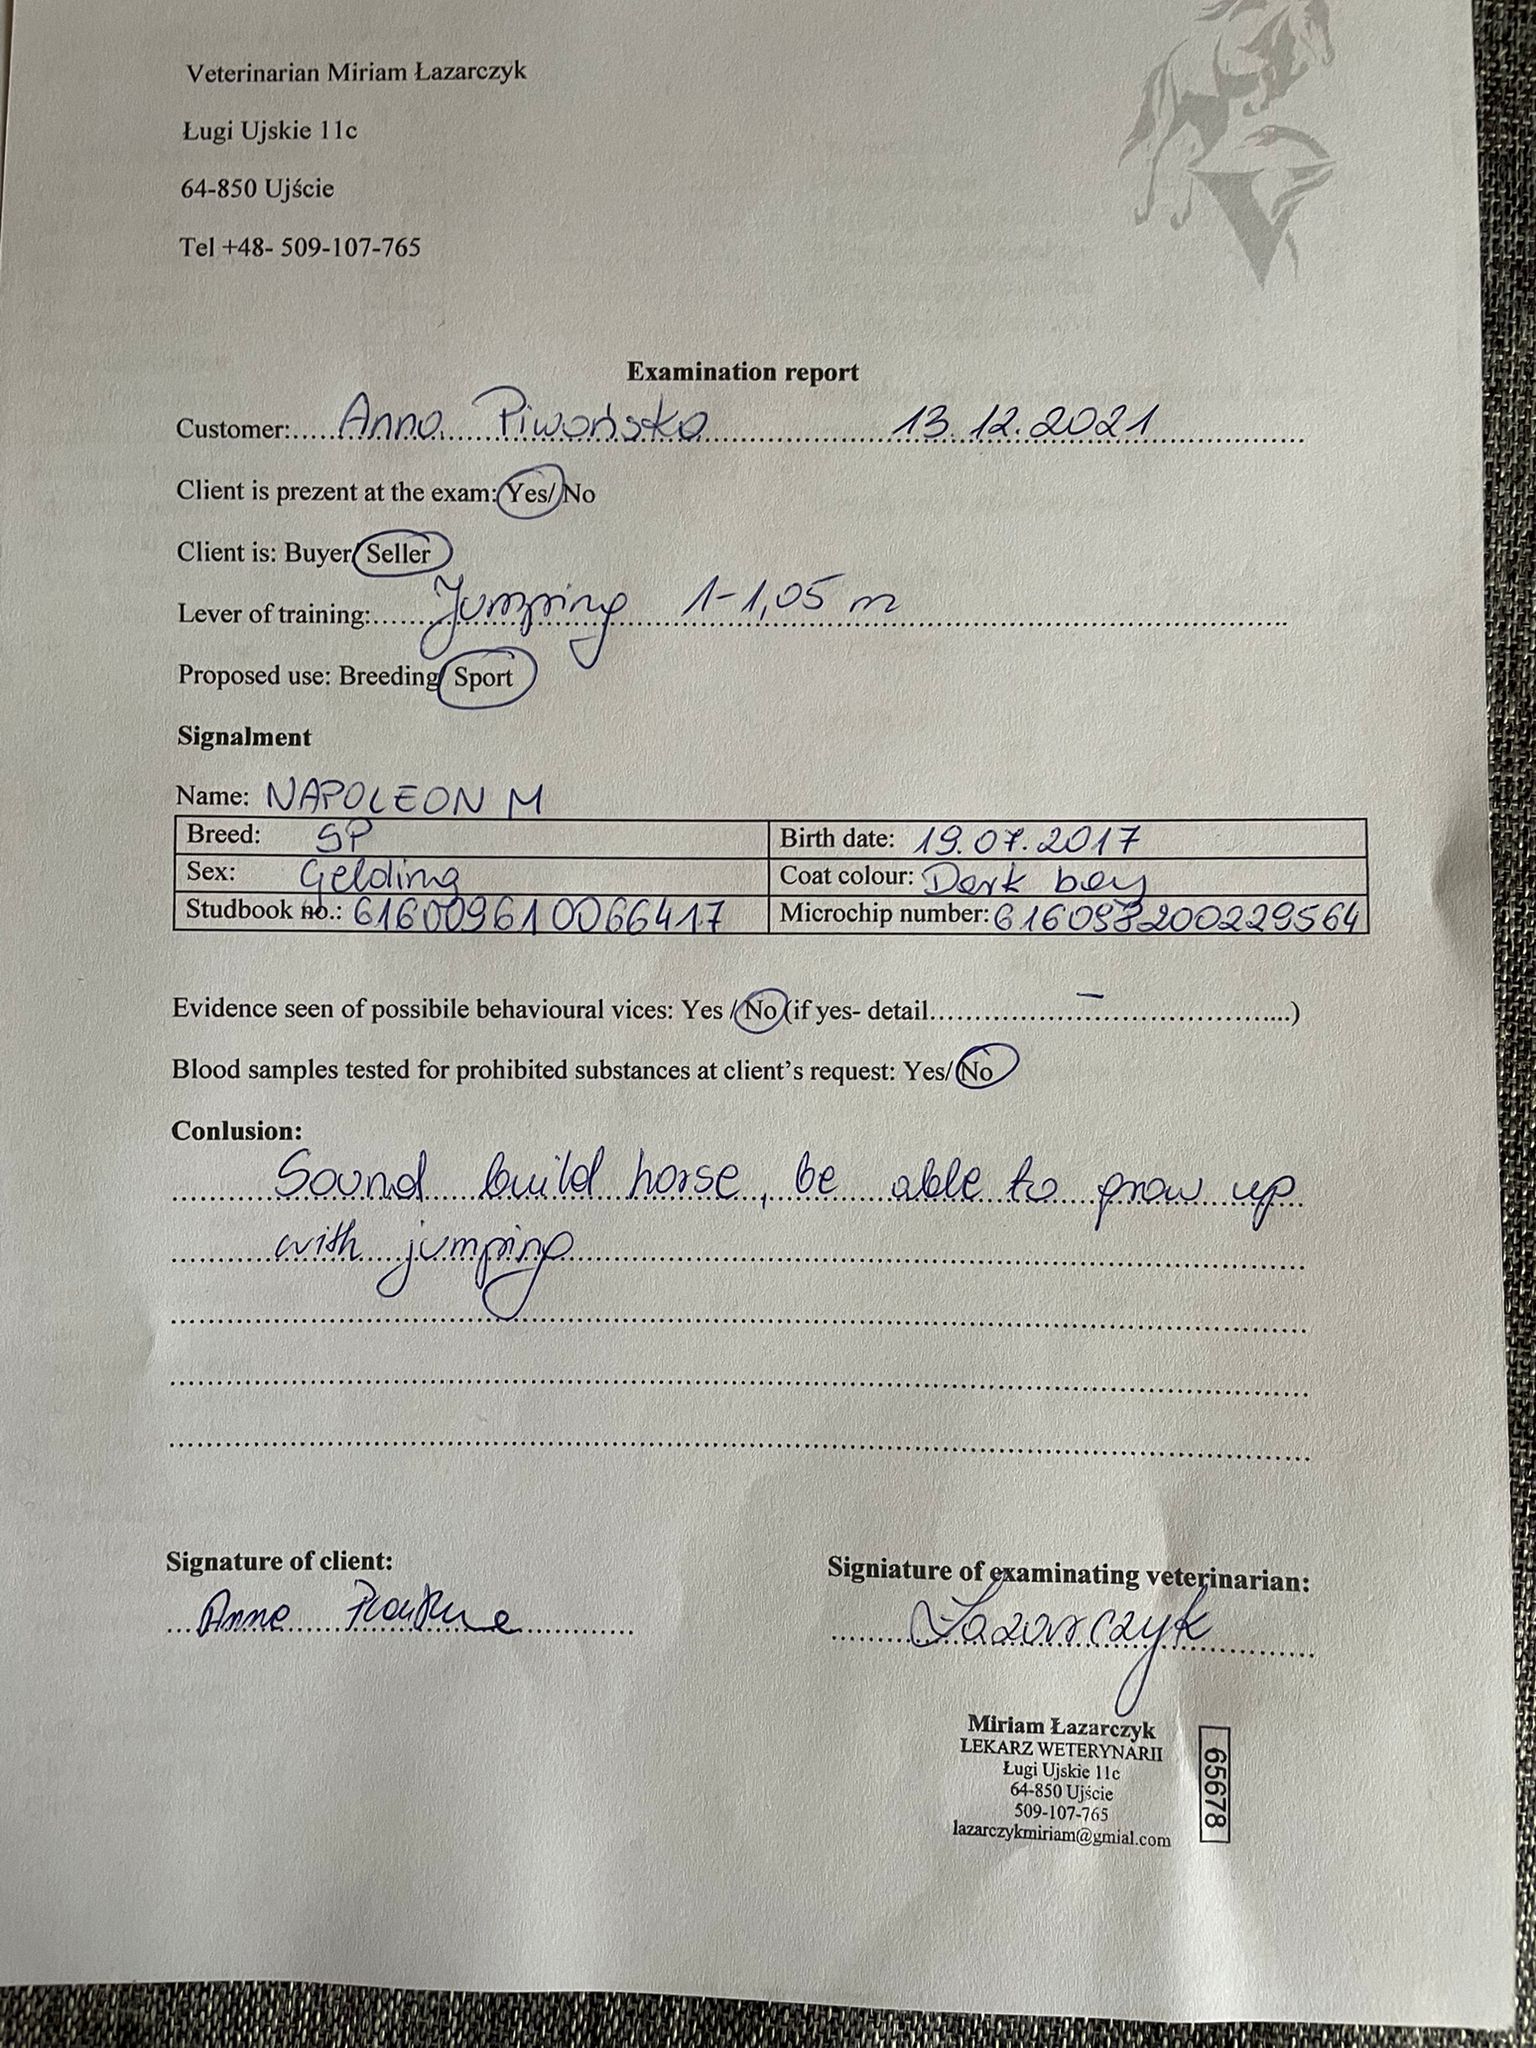 Veterinarian Miriam Łazarczyk
Ługi Ujskie 11c
64-850 Ujście
Tel +48- 509-107-765
Examination report
Customer: Anna Piwońska 13.12.2021
Client is prezent at the exam: Yes/ No
Client is: Buyer/ Seller
Lever of training: Jumping 1-1,05 m
Proposed use: Breeding/ Sport
Signalment
Name: NAPOLEON M
Breed: SP Birth date: 19.07.2017
Sex: Gelding Coat colour: Dark bay
Studbook no.: 616009610066417 Microchip number:
Evidence seen of possibile behavioural vices: Yes / No (if yes- detail – )
Blood samples tested for prohibited substances at client's request: Yes/ No
Conlusion:
Sound build horse, be able to grow up
with jumping
Signature of client: Signiature of examinating veterinarian:
Anna Łazarczyk
Miriam Łazarczyk
LEKARZ WETERYNARII
Ługi Ujskie 11c
64-850 Ujście
509-107-765
lazarczykmiriam@gmial.com
65678